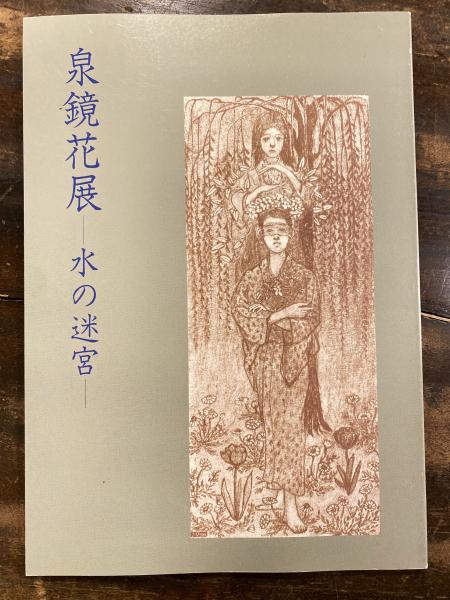 泉鏡花展―水の迷宮―